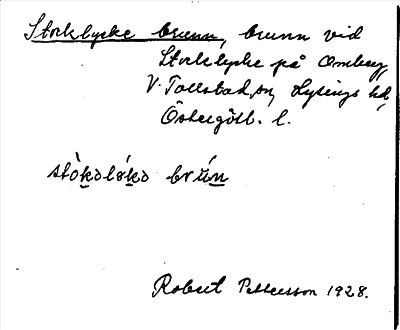 Storklycke brunn, brunn vid
Storklycke på Omberg,
V. Tollstad sn, Lysings hd,
Östergötl. l.
stòkolśko brún
Robert Pettersson 1928.